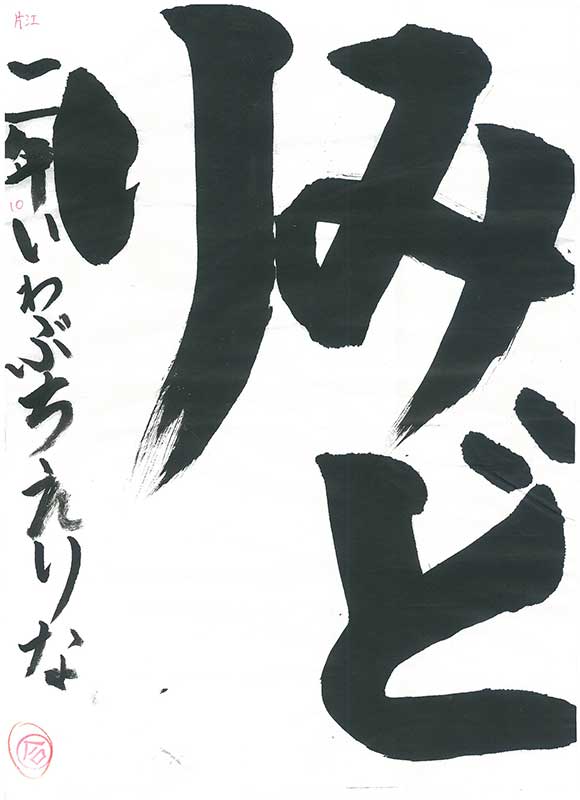 みど
り
二年 いわぶち えりな
片江
10